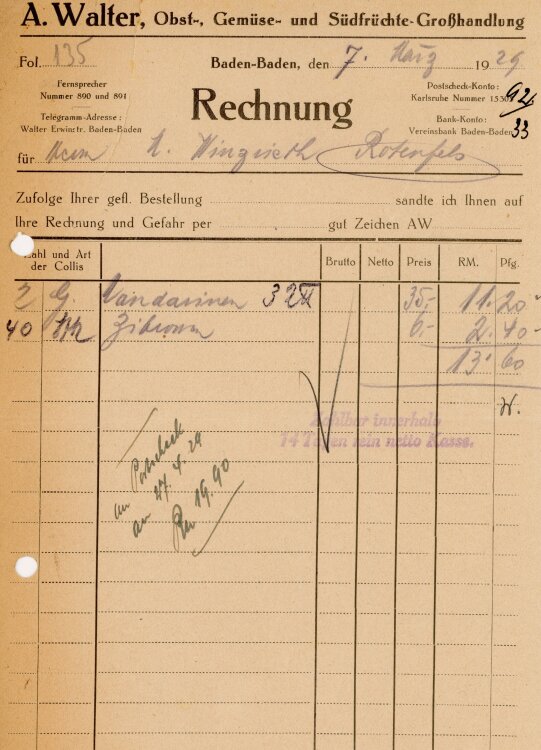 A. Walter, Obst-, Gemüse- und Südfrüchte-Großhandlung
Fol. 135 Baden-Baden, den 7. März 1929
Fernsprecher
Nummer 890 und 891
Telegramm-Adresse:
Walter Erwinstr. Baden-Baden
Rechnung
Postscheck-Konto:
Karlsruhe Nummer
Bank-Konto:
Vereinsbank Baden-Baden
33
für Rotenfels
Zufolge Ihrer gefl. Bestellung sandte ich Ihnen auf
Ihre Rechnung und Gefahr per gut Zeichen AW
und Art der Collis Brutto Netto Preis RM. Pfg.
2 Mandarinen 32 35,- 11.20
40 Zitronen 6.- 2.40
13.60
Zahlbar innerhalb
14 Tagen rein netto Kasse.
an Postscheck
am 27.4.29
19.90